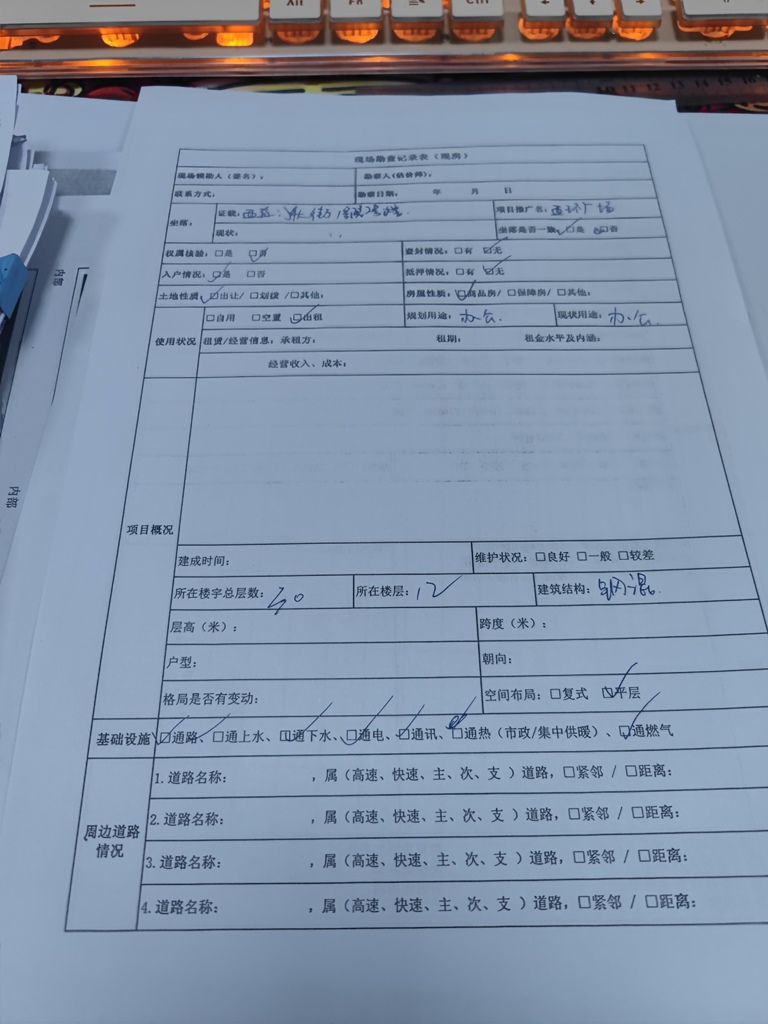 Alt Fn Ctrl
11 12 13 14 15 16
现场勘查记录表（现房）
现场领勘人（签名）： 勘察人（估价师）：
联系方式： 勘察日期： 年 月 日
坐落： 证载： 项目推广名： 广场
现状： 坐落是否一致：□是 □否
权属核验：□是 □否 查封情况：□有 □无
入户情况：□是 □否 抵押情况：□有 □无
土地性质：□出让/ □划拨 /□其他： 房屋性质：□商品房/ □保障房/ □其他：
使用状况 □自用 □空置 □出租 规划用途：办公. 现状用途：办公.
租赁/经营信息：承租方： 租期： 租金水平及内涵：
经营收入、成本：
项目概况
建成时间： 维护状况：□良好 □一般 □较差
所在楼宇总层数：30 所在楼层：12 建筑结构：钢混.
层高（米）： 跨度（米）：
户型： 朝向：
格局是否有变动： 空间布局：□复式 □平层
基础设施 □通路、□通上水、□通下水、□通电、□通讯、□通热（市政/集中供暖）、□通燃气
周边道路情况
1.道路名称： ，属（高速、快速、主、次、支 ）道路，□紧邻 / □距离：
2.道路名称： ，属（高速、快速、主、次、支 ）道路，□紧邻 / □距离：
3.道路名称： ，属（高速、快速、主、次、支 ）道路，□紧邻 / □距离：
4.道路名称： ，属（高速、快速、主、次、支 ）道路，□紧邻 / □距离：
内部
内部